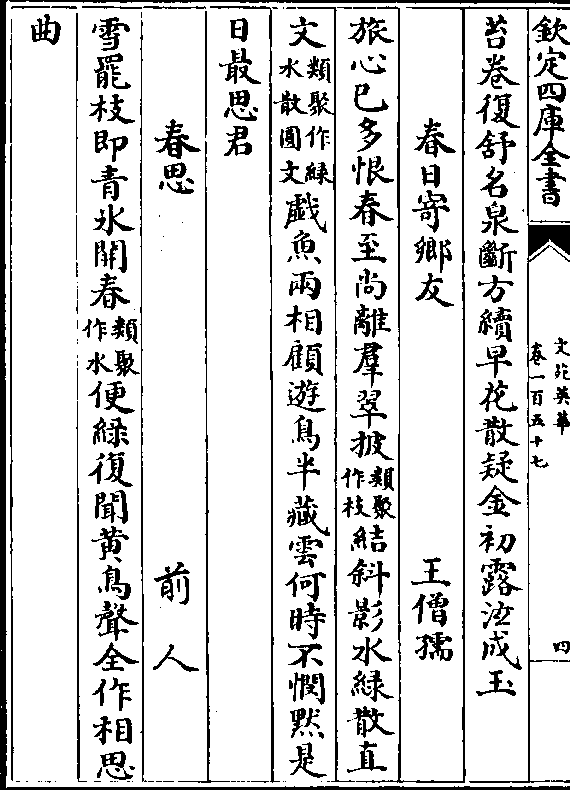 欽定四庫全書
文苑英華
卷一百五十七
四
苔卷復舒名泉斷方續早花散疑金初露泫成玉
春日寄鄉友
王僧孺
旅心已多恨春至尚離羣翠披
類聚
作枝
結斜影水綠散直
文
類聚作綠
水散圓文
戲魚兩相顧遊鳥半藏雲何時不憫默是
日最思君
春思
前人
雪罷枝即青氷開春
類聚
作水
便綠復聞黄鳥聲全作相思
曲